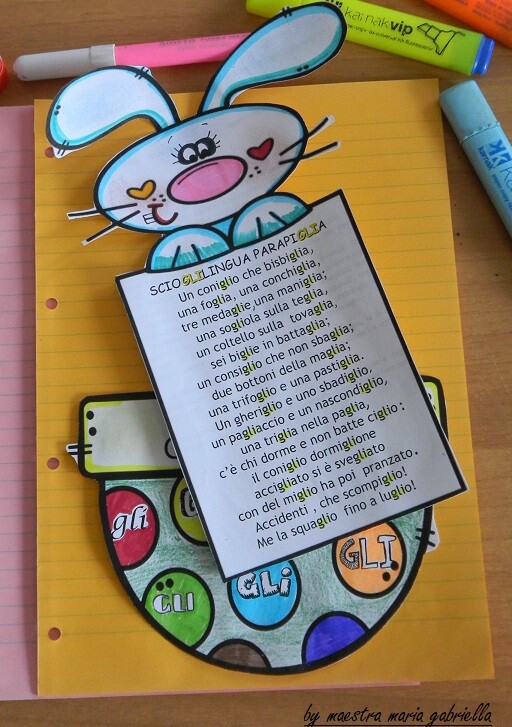 kai nak vip
SCIOGLILINGUA PARAPIGLIA
Un coniglio che bisbiglia,
una foglia, una conchiglia,
tre medaglie,una maniglia;
una sogliola sulla teglia,
un coltello sulla tovaglia,
sei biglie in battaglia;
un consiglio che non sbaglia;
due bottoni della maglia;
una trifoglio e una pastiglia.
Un gheriglio e uno sbadiglio,
un pagliaccio e un nascondiglio,
una triglia nella paglia,
c'è chi dorme e non batte ciglio:
il coniglio dormiglione
accigliato si è svegliato
con del miglio ha poi pranzato.
Accidenti , che scompiglio!
Me la squaglio fino a luglio!
gli
GLI
GLi
GLI
by maestra maria gabriella